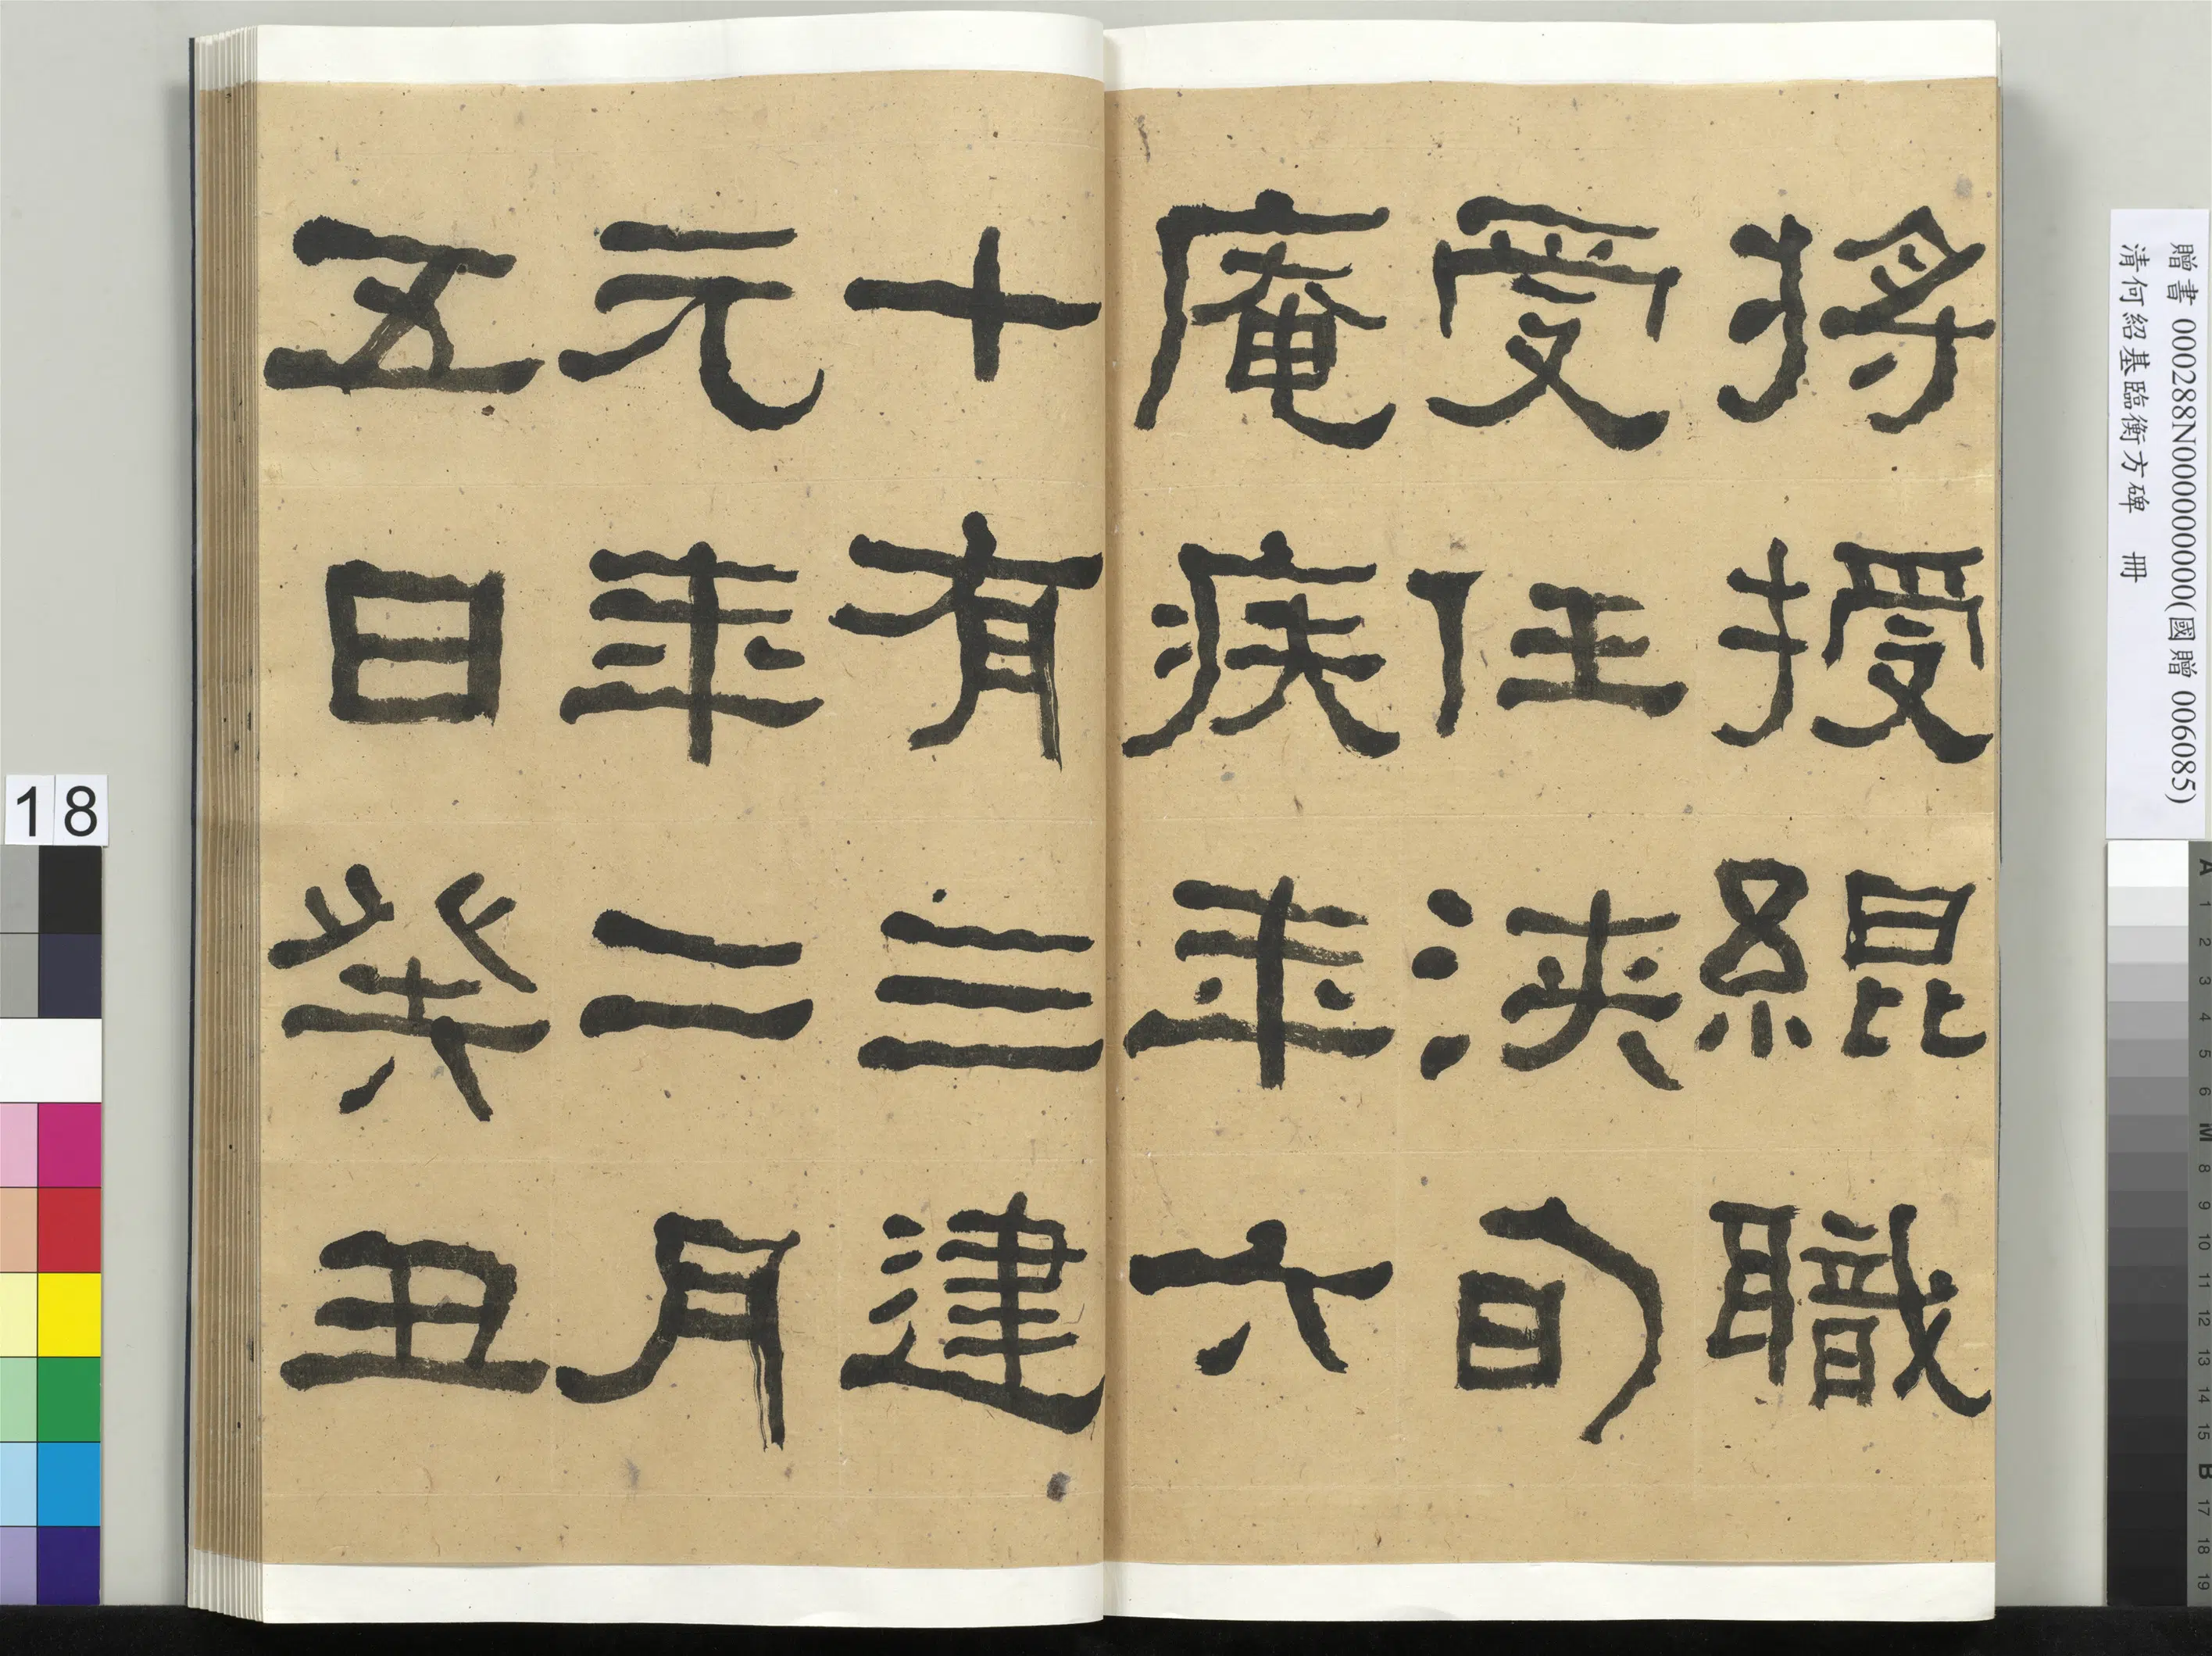 將授緄職
受任浹旬
庵疾年六
十有三建
元年二月
五日癸丑
贈書 000288N000000000(國贈 006085)
清何紹基臨衡方碑 冊
18
A 1 2 3 4 5 6 M 8 9 10 11 12 13 14 15 B 17 18 19